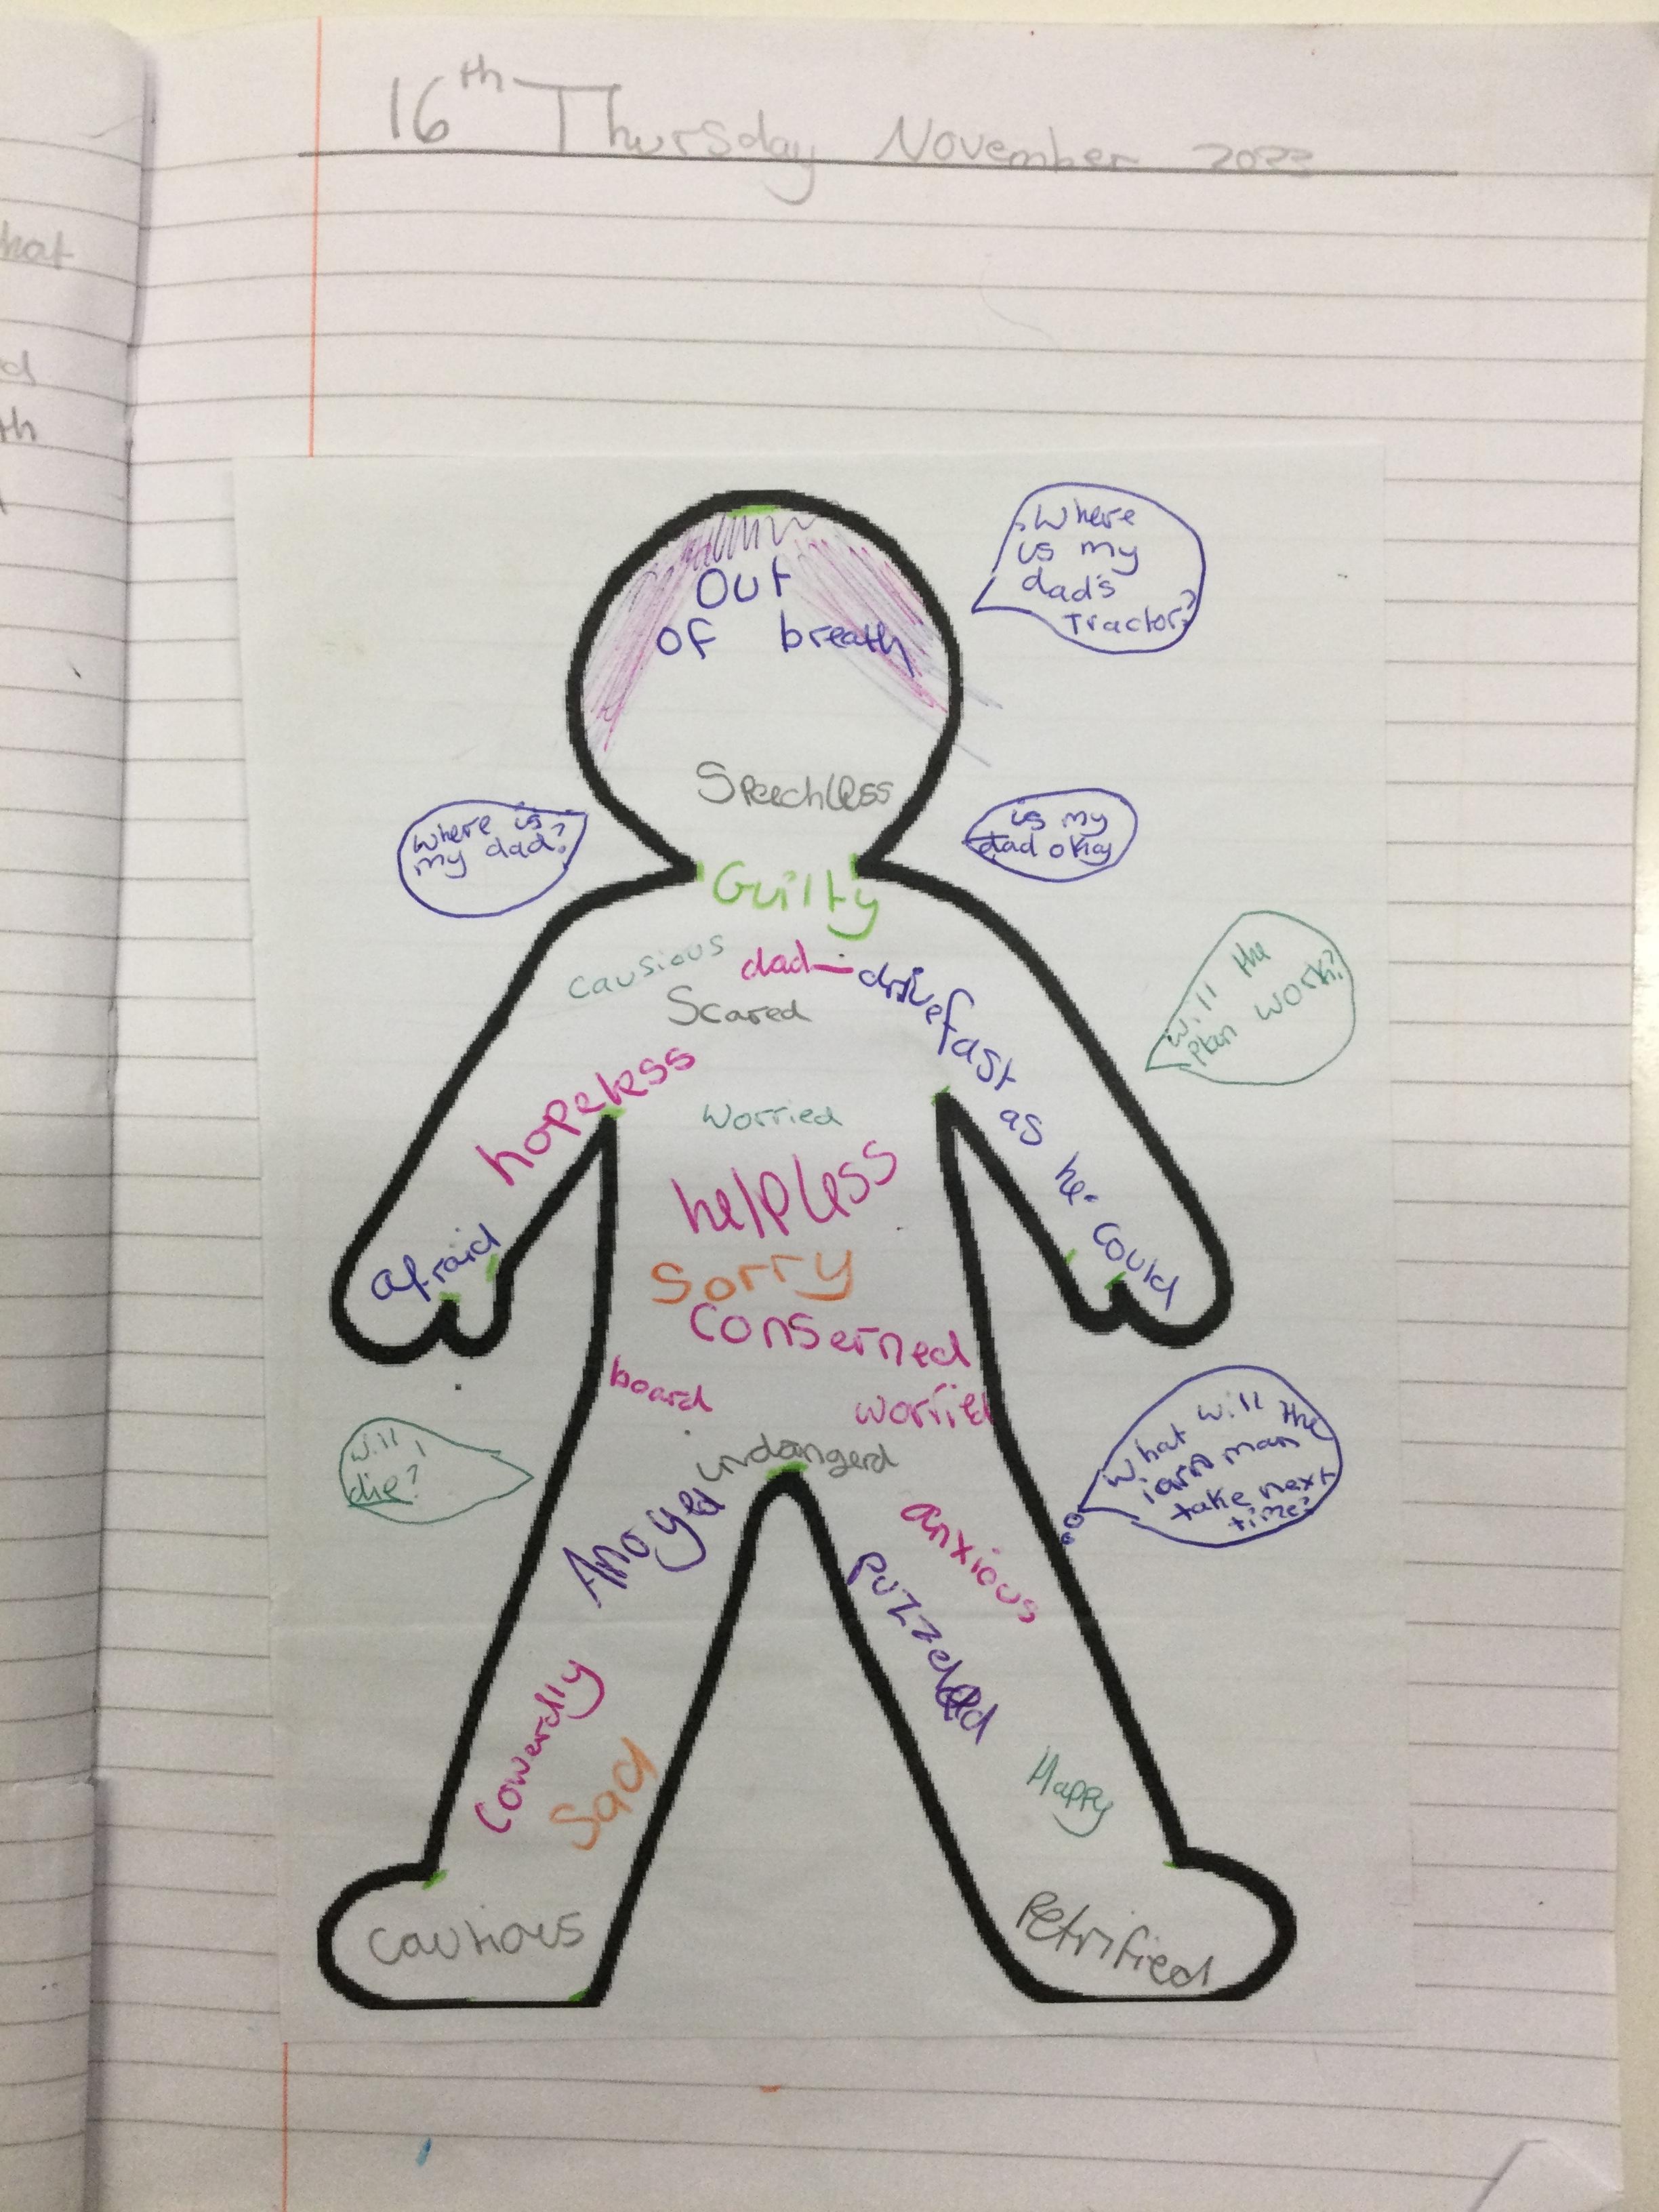 hat
d
th
16th Thursday November 2023
Out
of breath
Where
is my
dad's
Tractor?
Speechless
Where is
my dad?
is my
dad okay
Guilty
Causious
dad— drive fast as he could
Scared
Will the
plan work?
hopeless
Worried
helpless
afraid
Sorry
Conserned
board
worried
indangerd
will I
die?
What will the
iarn man
take next
time?
Anoyed
anxious
puzzeled
Cowerdly
Sad
Happy
Cautious
Petrified